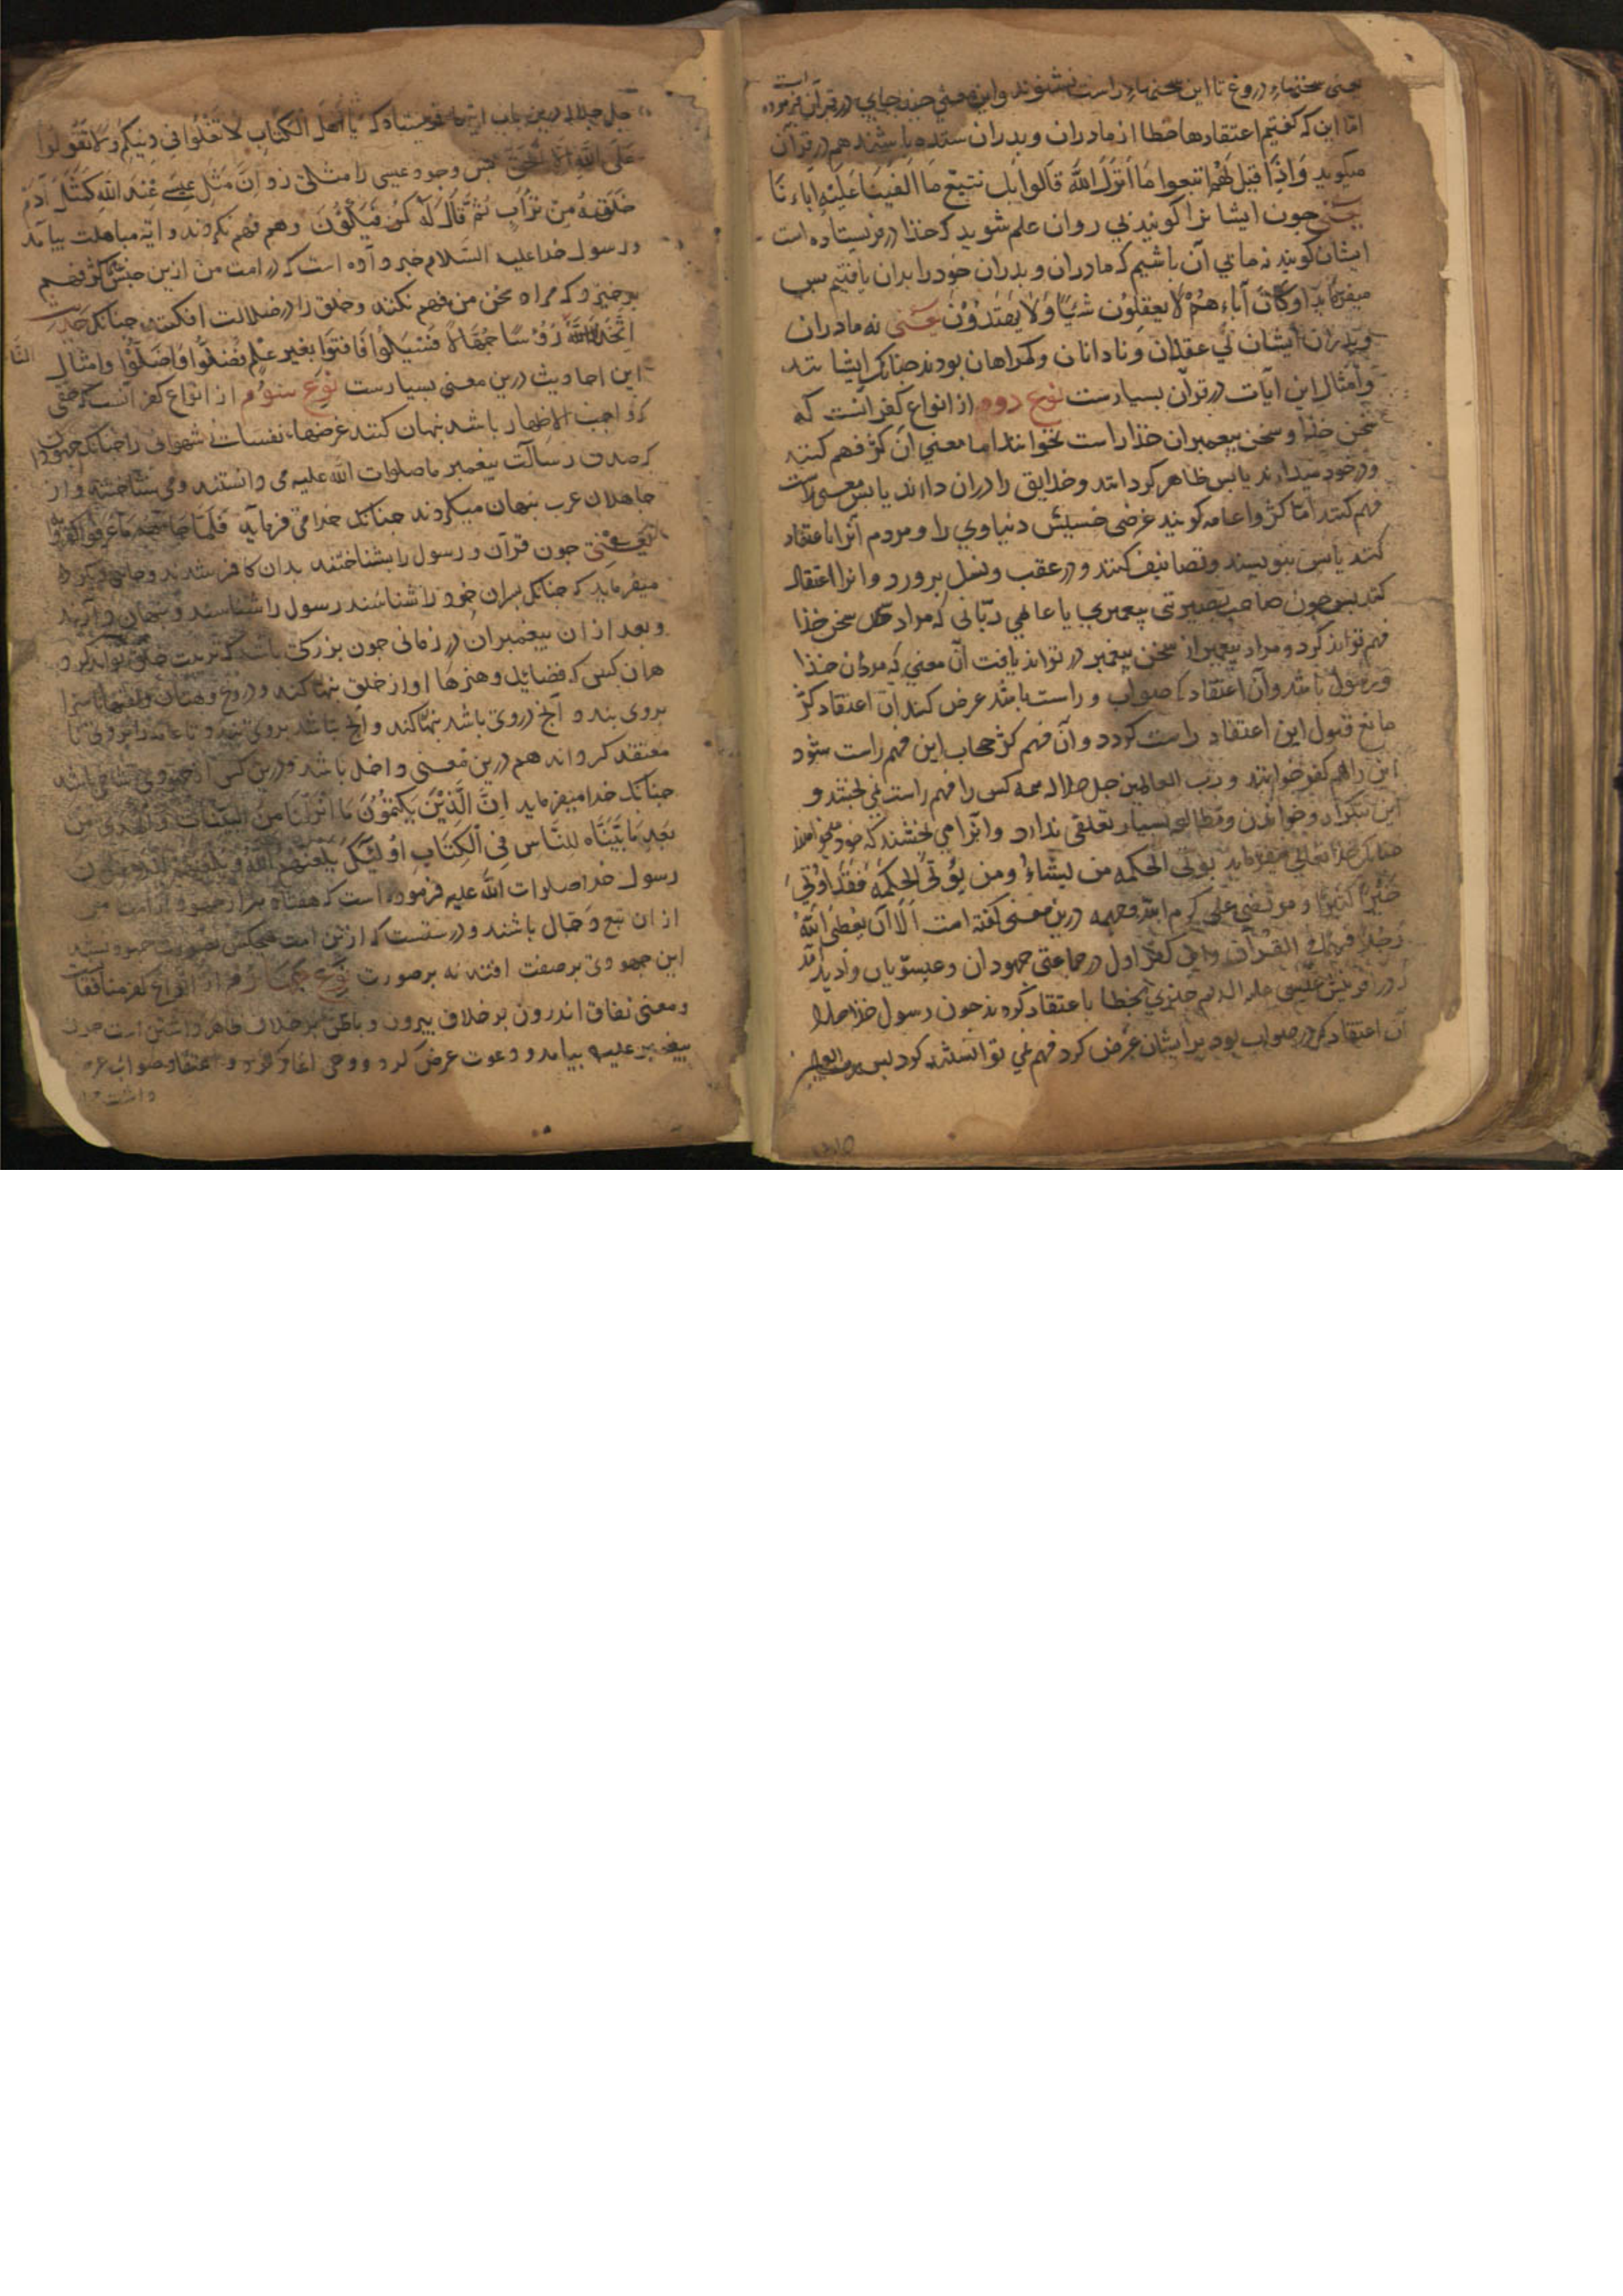 یعنی سخنهاء دروغ تا این سخنهاء راست نشنوند و این معنی چند جای در قرآن فرموده است
اما این که گفتیم اعتقادها خطا از مادران و پدران ستده باشند هم در قرآن
میگوید وَاِذَا قِیلَ لَهُمُ اتبعوا مَا اَنزَلَ اللّهُ قَالُوا بل نتبع مَا اَلفَینَا عَلَیْهِ اٰبَاءنَا
یعنی چون ایشانرا گویند پی روان علم شوید که خذا در فرستاده است
ایشان گویند نه ما پی آن باشیم که مادران و پدران خود را بدان یافتیم پس
میفرماید اوَکَانَ آبَاءهُمْ لَا یعقِلُون شَیْئًا وَلَا یَهْتَدُوْنَ یعنی نه مادران
و پدران ایشان بی عقلان و نادانان و گمراهان بودند چنانک ایشانند
و امثال این آیات در قرآن بسیارست نوع دوم از انواع کفر آنست که
سخن خذا و سخن پیغمبران خذا راست بخوانند اما معنی آن کژ فهم کنند
و در خود میدارند یا پس ظاهر گردانند و خلایق را در آن دارند یا پس معنی راست
فهم کنند اما کژ وا عامه گویند غرضی خسیس دنیاوی را و مردم آنرا اعتقاد
کنند یا پس بنویسند و تصانیف کنند و در عقب و نسل برورد و انرا اعتقاد
کنند پس چون صاحب بصیرتی پیغمبری یا عالمی ربّانی که مراد سخن خذا
فهم تواند کرد و مراد پیغمبر از سخن پیغمبر در تواند یافت آن معنی که مراد آن خذا
و رسول باشد و آن اعتقاد که صواب و راست باشد عرض کند آن اعتقاد کژ
مانع قبول این اعتقاد راست گردد و آن فهم کژ حجاب این فهم راست شود
این را هم کفر خوانند و رب العالمین جل جلاله همه کس را فهم راست نمی بخشد و
این بتکرار و خواندن و مطالعه بسیار تعلقی ندارد و آنرا می بخشند که خود میخواهد
چنانک خذا تعالی میفرماید یوتی الحکمه من یشاءُ ومن یُؤتَی الحِکمَة فَقَد اوُتِیَ
خَیْرًا کثیرًا و مرتضی علی کرم الله وجهه درین معنی گفته است اَلَا اَن یُعطی اللهُ
رَجُلا فهمًا فی القُرآن و این کفر اول در جماعتی جهودان و عیسویان وادید آمد
در آفرینش عیسی علیه السلام چیزی بخطا باعتقاد کرده بد چون رسول خذا
آن اعتقاد که در صواب بود بر ایشان عرض کرد فهم نمی توانستند کرد پس رب العالمین
جل جلاله درین باب آیتها فرستاد که یَا اَهْلَ الْکِتَابِ لَا تَغْلُوا فِی دِینِکُمْ وَلَا تَقُولُوا
عَلَی اللّهِ اِلَّا الْحَقَّ پس وجود عیسی را مثلی زد اِنَّ مَثَل عِیسَی عِنْدَ اللّهِ کَمَثَلِ آدَمَ
خَلَقَهُ مِنْ تُرَابٍ ثُمَّ قَالَ لَهُ کُنْ فَیَکُوْنَ و هم فهم نکردند و آیه مباهلت بیامد
و رسول خدا علیه السّلام خبر داده است که در امت من ازین جنس کژ فهم
برخیزد که مراد سخن من فهم نکند و خلق را در ضلالت افکند چنانک حدیث
اتَّخَذَ النّاسُ رُؤسًا جُهَّالًا فَسُئِلُوا فَافتَوا بِغَیرِ عِلمٍ فَضَلُّوا فَاَضَلُّوا و امثال
این احادیث درین معنی بسیارست نوع سوم از انواع کفر آنست که حقی
که واجب الاظهار باشد پنهان کنند غرضهاء نفسانی شهوانی را چنانک جهودان
که صدق رسالت پیغمبر ما صلوات اللّه علیه می دانستند و می شناختند و از
جاهلان عرب پنهان میکردند چنانک خدا می فرماید فَلَمَّا جَاءَهُم مَا عَرَفُوا کَفَرُوا
یعنی چون قرآن و رسول را بشناختند بدان کافر شدند و جایی دیگر
میفرماید که چنانک پسران خود را شناسند رسول را شناسند و پنهان دارند
و بعد از ان پیغمبران در زمانی چون بزرگی باشد که تربیت خلق تواند کرد
هران کسی که فضایل و هنرها او از خلق پنهان کند و دروغ و بهتان و لقبها ناسزا
بروی بندد و آنچ دروی باشد پنهان کند و آنچ نباشد بروی بندد تا عامه را بروی نا
معتقد گرداند هم درین معنی داخل باشد و درین کس از جهودی نشانی باشد
چنانک خدا میفرماید اِنَّ الَّذِیْنَ یَکْتُمُوْنَ مَا اَنْزَلْنَا مِنَ الْبَیِّنَاتِ وَالْهُدَی مِن
بَعْدِ مَا بَیَّنَّاهُ لِلنَّاسِ فِی الْکِتَابِ اوُلٰئِکَ یَلْعَنُهُمُ اللّهُ وَیَلْعَنُهُمُ اللَّاعِنُون
رسول خدا صلوات اللّه علیه فرموده است که هفتاد هزار جهود از امت من
از ان تبع دجال باشند و درستست که ازین امت هیچکس بصورت جهود نشد
این جهودی بر صفت افتد نه بر صورت نوع چهارم از انواع کفر منافقان
و معنی نفاق اندرون بر خلاف بیرون و باطن بر خلاف ظاهر داشتن است چون
پیغمبر علیه بیامد و دعوت عرض کرد و وحی آغاز کرد و اعتقاد صواب عرضه
داشت